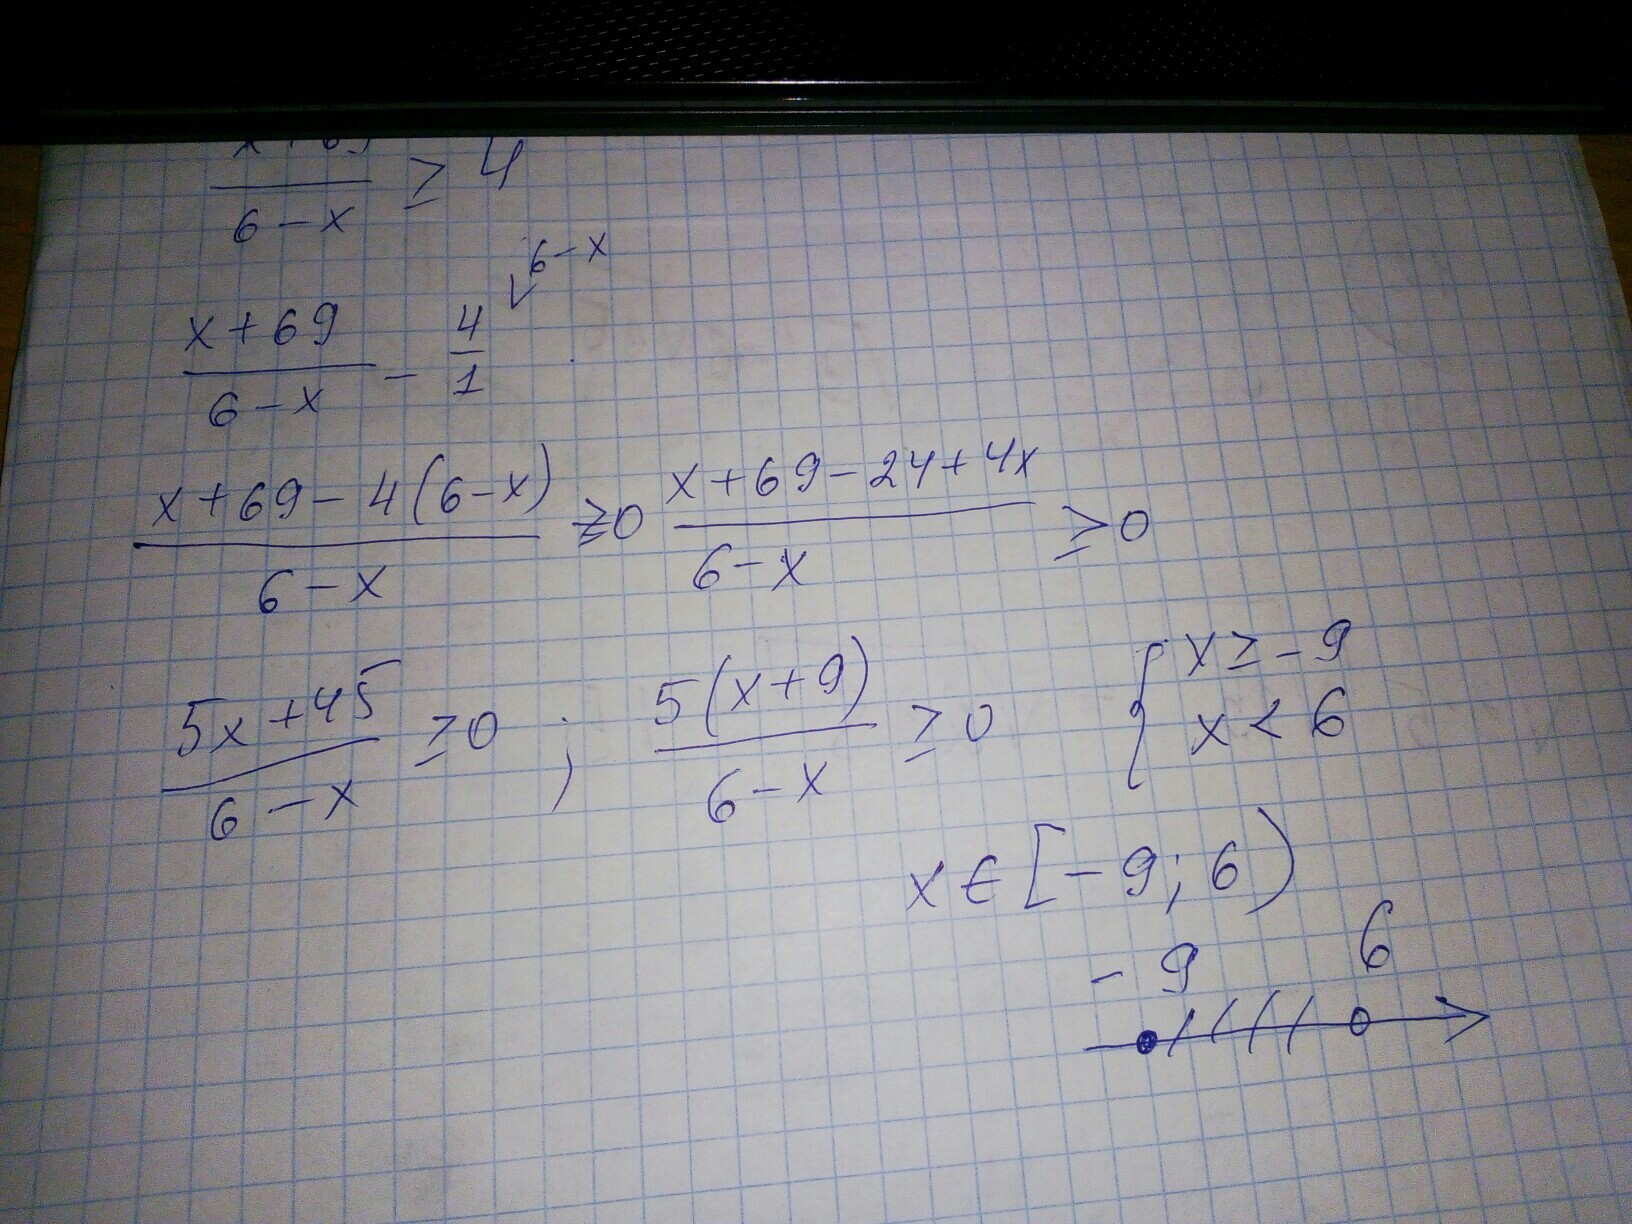 x+69/6-x ≥ 4
6-x
x+69/6-x - 4/1
x+69-4(6-x)/6-x ≥0 x+69-24+4x/6-x ≥0
5x+45/6-x ≥0 ; 5(x+9)/6-x ≥0 { x≥-9
x<6
x∈[-9;6)
-9 6